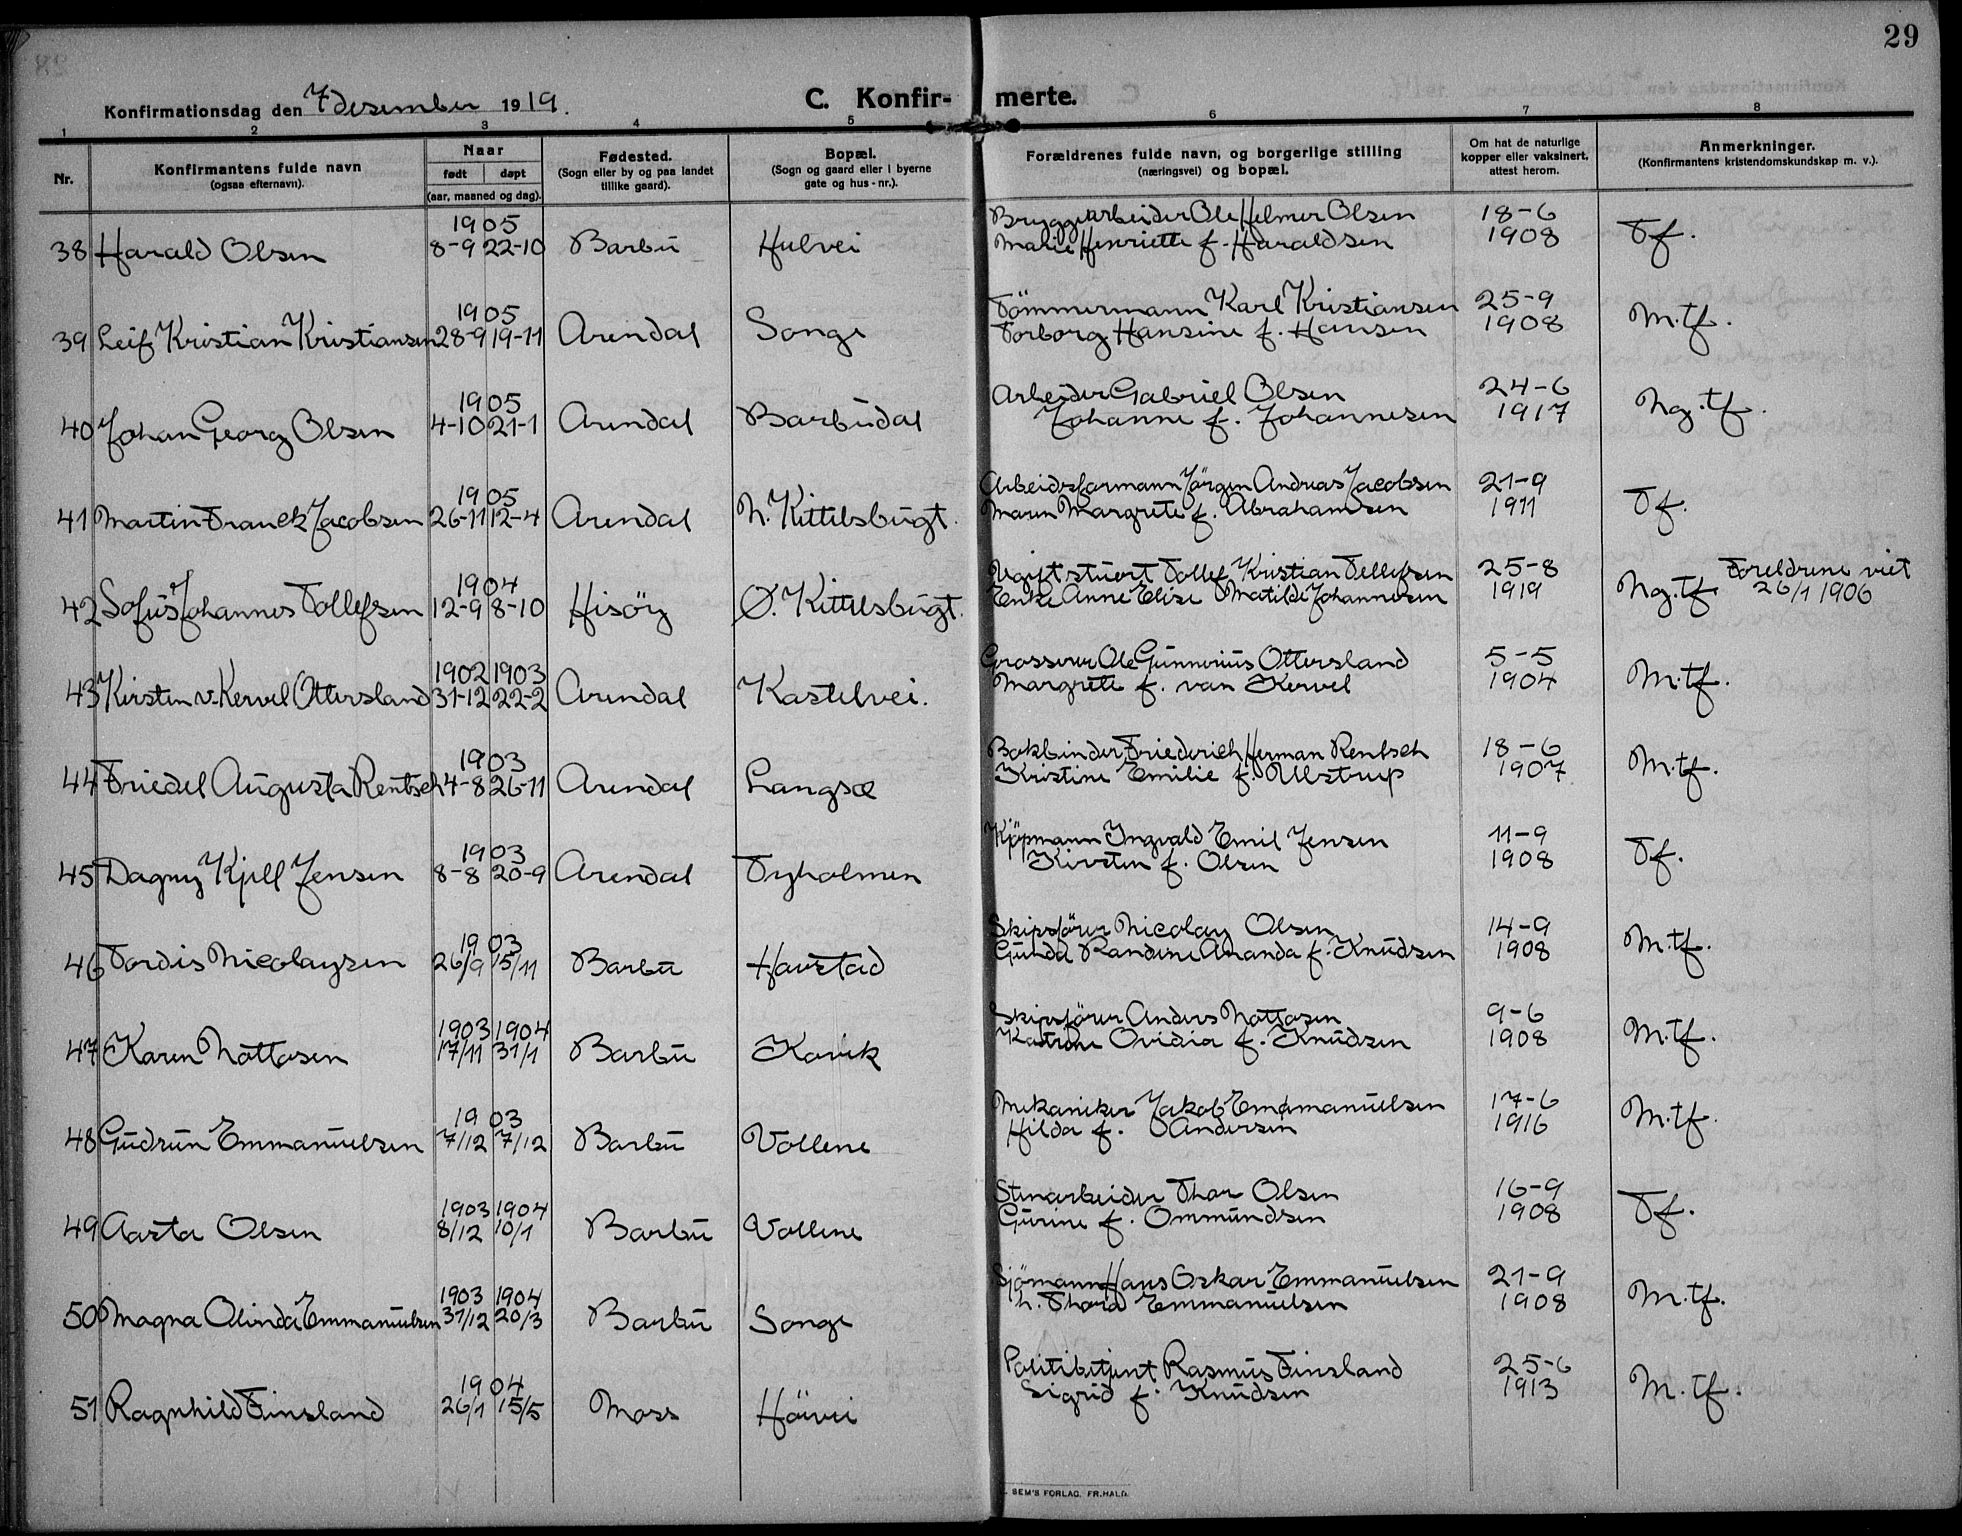 29
Konfirmationsdag den 7 desember 1919.
C. Konfir- merte.
1 2 3 4 5 6 7 8
Nr.
Konfirmantens fulde navn
(ogsaa efternavn).
Naar
født døpt
(aar, maaned og dag).
Fødested.
(Sogn eller by og paa landet
tillike gaard).
Bopæl.
(Sogn og gaard eller i byerne
gate og hus-nr.).
Forældrenes fulde navn, og borgerlige stilling
(næringsvei) og bopæl.
Om hat de naturlige
kopper eller vaksinert,
attest herom.
Anmerkninger.
(Konfirmantens kristendomskundskap m. v.).
1905 Bryggearbeider Ole Helmer Olsen 18-6
38 Harald Olsen 8-9 22-10 Barbu Hulvei Marie Henriette f. Haraldsen 1908 Tf.
1905 Tömmermann Karl Kristiansen 25-9
39 Leif Kristian Kristiansen 28-9 19-11 Arendal Songe Torborg Hansine f. Hansen 1908 M.tf.
1905 Arbeider Gabriel Olsen 24-6
40 Johan Georg Olsen 4-10 21-1 Arendal Barbudal Johanne f. Johannesen 1917 Ng.tf.
1905 Arbeidsformann Jörgen Andreas Jacobsen 21-9
41 Martin Franck Jacobsen 26-11 12-4 Arendal N. Kittilsbugt. Maren Margrete f. Abrahamsen 1911 Tf.
1904 Ugift stuert Tollef Kristian Tellefsen 25-8 Foreldrene viet
42 Sofus Johannes Tollefsen 12-9 8-10 Hisöy Ø. Kittilsbugt. Enke Anne Elise Matilde Johannesen 1919 Ng.tf. 26/1 1906
1902 1903 Grosserer Ole Gunnerius Ottersland 5-5
43 Kirsten v. Kervel Ottersland 31-12 22-2 Arendal Kastelvei. Margrete f. van Kervel 1904 M.tf.
1903 Bokbinder Friederich Herman Rentsch 18-6
44 Friedel Augusta Rentsch 4-8 26-11 Arendal Langsæ Kristine Emilie f. Ulstrup 1907 M.tf.
1903 Kjöpmann Ingvald Emil Jensen 11-9
45 Dagny Kjell Jensen 8-8 20-9 Arendal Tyholmen Kirsten f. Olsen 1908 Tf.
1903 Skipsförer Nicolay Olsen 14-9
46 Tordis Nicolaysen 26/9 15/11 Barbu Havstad Gunda Randine Amanda f. Knudsen 1908 M.tf.
1903 1904 Skipsförer Anders Nottosen 9-6
47 Karen Nottosen 17/11 31/1 Barbu Kavik Katrine Ovidia f. Knudsen 1908 M.tf.
1903 Mekaniker Jakob Emmanuelsen 17-6
48 Gudrun Emmanuelsen 7/12 7/12 Barbu Vollene Hilda f. Andersen 1916 M.tf.
1903 1904 Stenarbeider Thor Olsen 16-9
49 Aasta Olsen 8/12 10/1 Barbu Vollene Gurine f. Ommundsen 1908 Tf.
1903 1904 Sjömann Hans Oskar Emmanuelsen 21-9
50 Magna Olinda Emmanuelsen 31/12 20/3 Barbu Songe h. Thora Emmanuelsen 1908 M.tf.
1904 Politibetjent Rasmus Finsland 25-6
51 Ragnhild Finsland 26/1 15/5 Moss Höivei Sigrid f. Knudsen 1913 M.tf.
SEM'S FORLAG, FR.HALD.